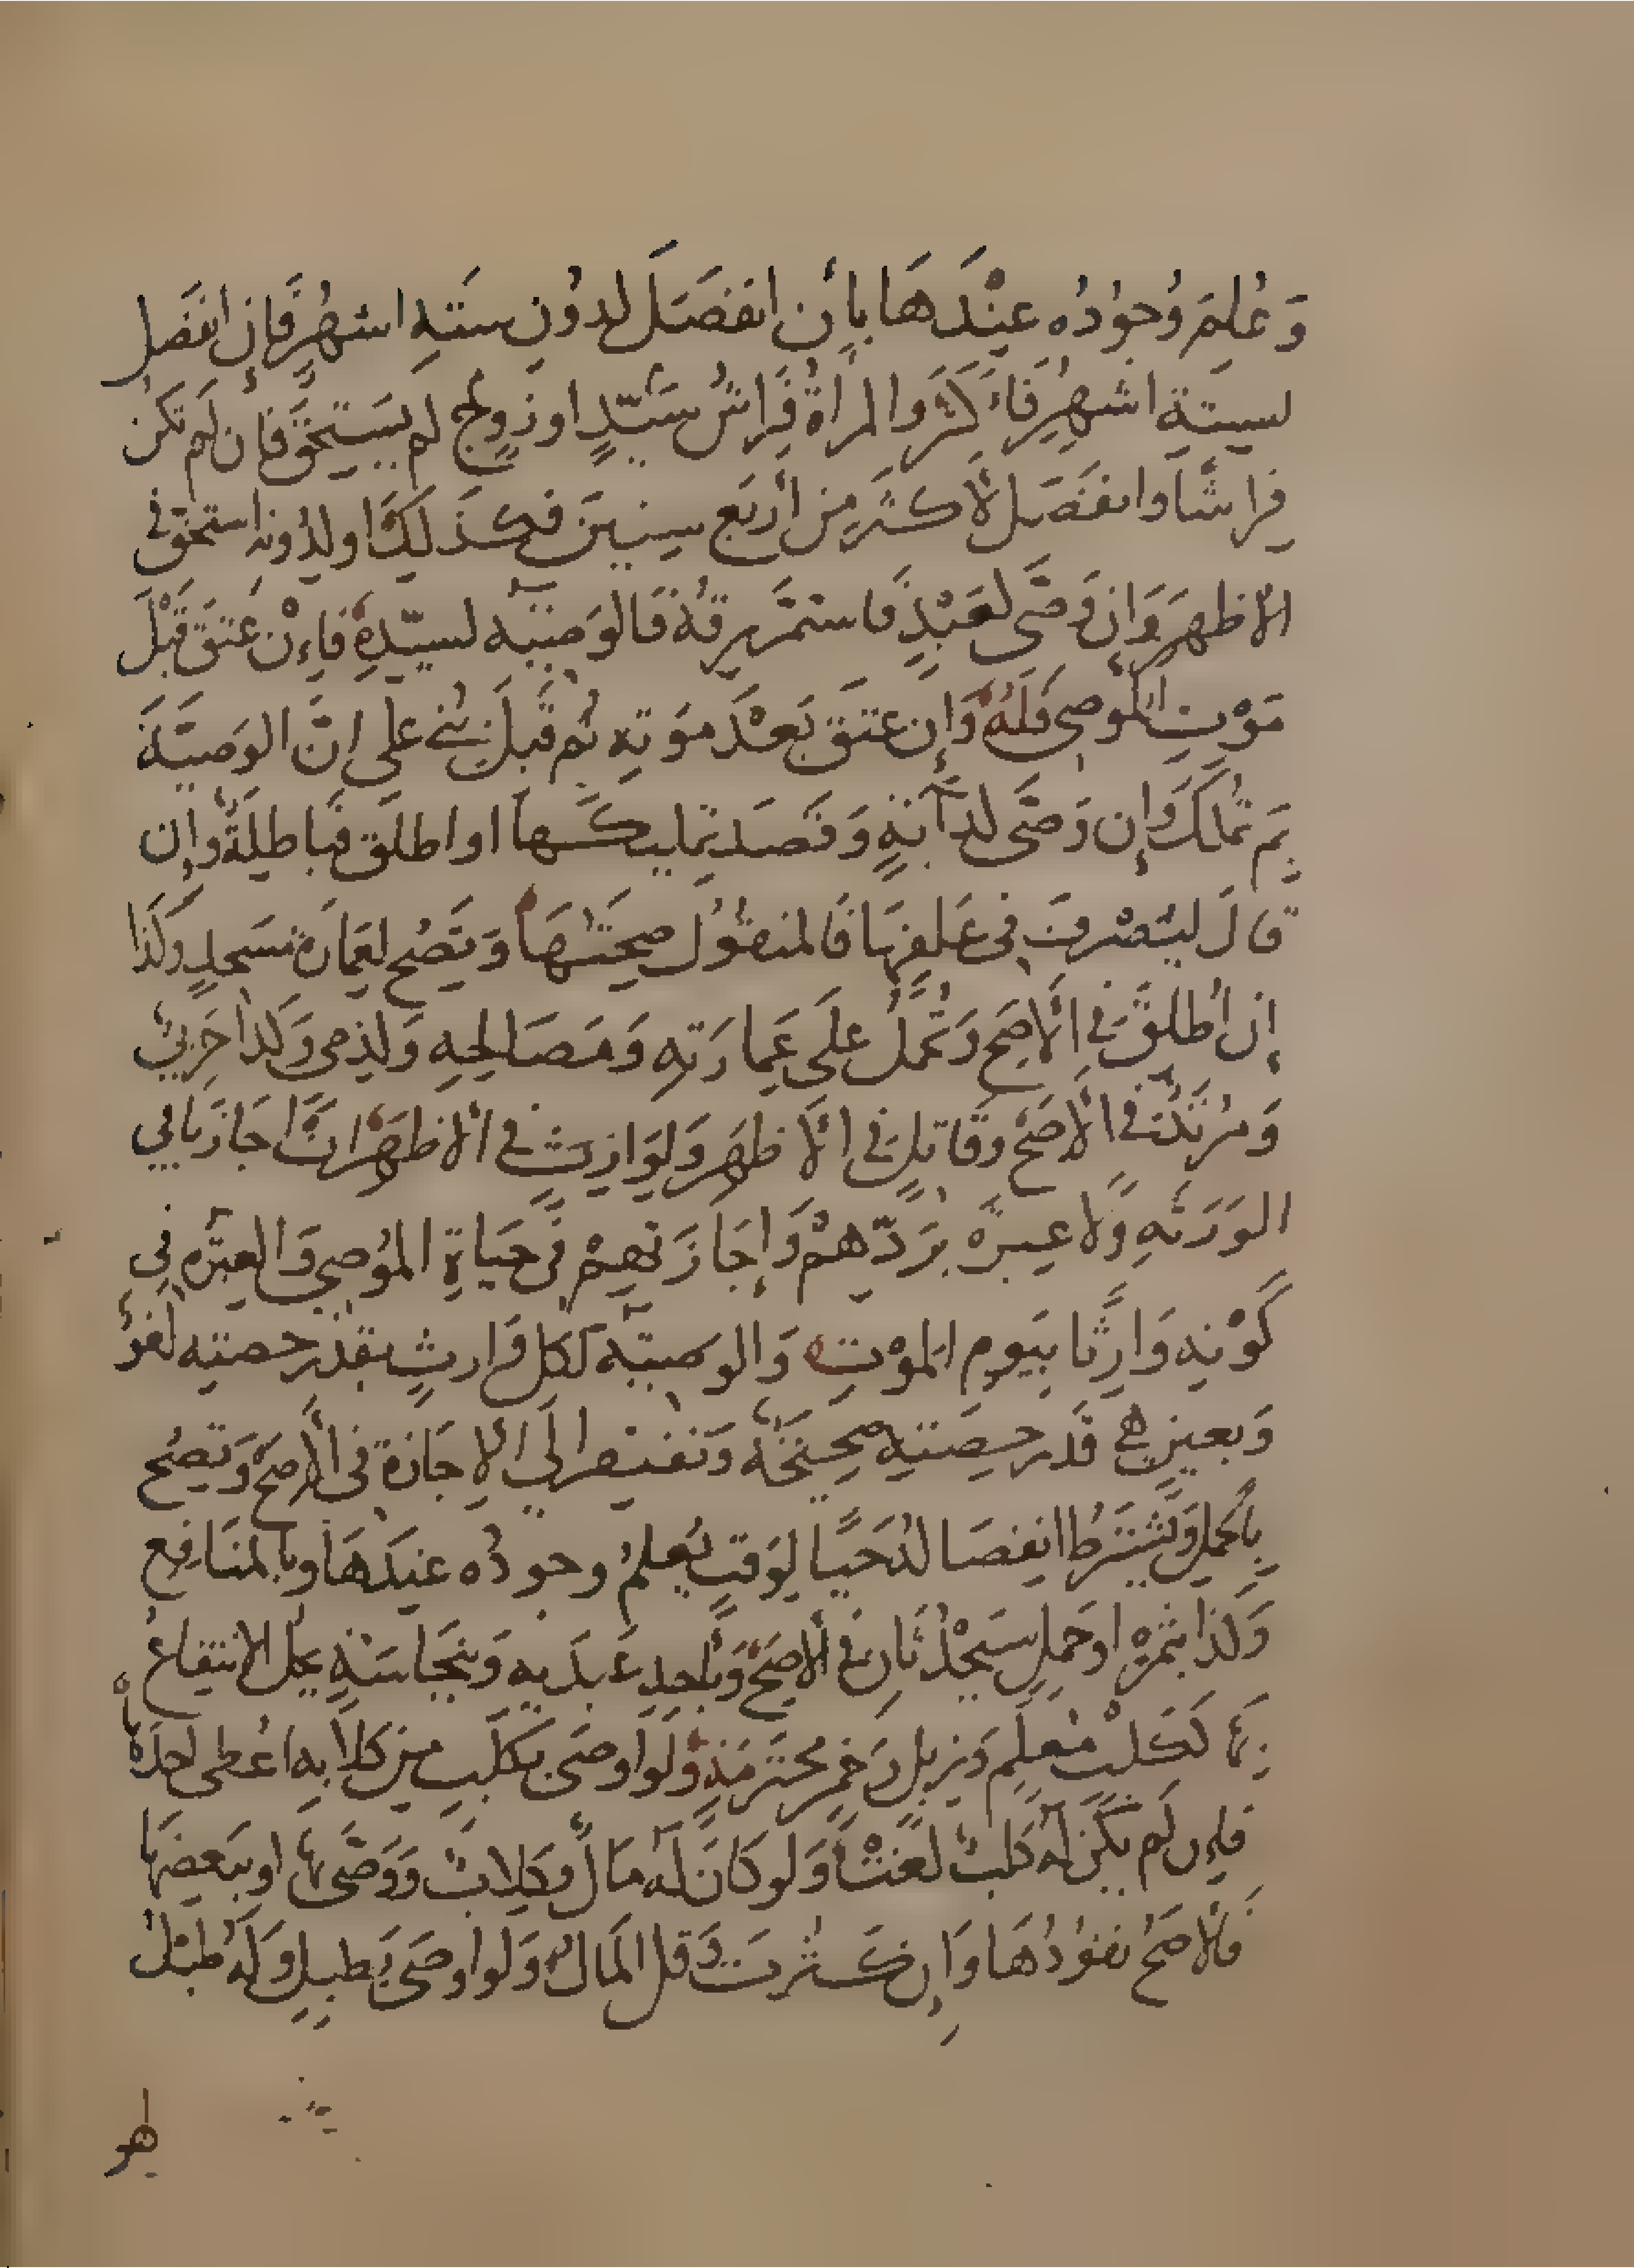 وَعُلِمَ وُجُودُه عِنْدَهَا بِأن انفَصَلَ لدُونِ ستةِ اشهُرٍ فَإن انفَصَل
لسِتةِ اشهُرٍ فَاءَكثَرَ والمرأةُ فِراشُ سَيّدٍ اوزوجٍ لم يَستَحِقَّ فإن لَم تكُن
فِراشًا وانفَصَل لأكثَرَ مِن أربَع سِنينَ فكذلِكَ اولدُونه استحق في
الأظهَرِ وَإن وَصَّى لعَبْدٍ فاستمَّر رِقُهُ فالوَصيّه لسيّدِهِ فاءِنْ عَتقَ قَبْلَ
مَوْتِ المُوصِي فَلَهُ وَإن عتَقَ بَعْدَ مَوتِهِ ثُم قَبِلَ بُنِيَ على انَّ الوَصِيَّةَ
بِم تُملَكُ وَإن وَصَّى لدآبّةٍ وَقَصَد تمليكَها اواطلَق فبَاطلَةٌ وإن
قالَ ليُصْرفَ في عَلفِهَا فَالمنقُولُ صِحّتُهَا وَتَصُح لعِمَارَة مَسجدٍ وَكَذا
إن أُطلقَ في الأصَح وَتُحمَلُ عَلَى عِمارَتهِ وَمَصَالحِهِ وَلذِمي وَكذا حَربيٌّ
وَمرتدٌّ في الأصَحّ وقَاتلٍ في الأظهَر وَلوَارِثٍ في الأظهَرِ انْ اجَازَ باقي
الوَرَثهِ وَلا عِبرَة برَدّهمْ وَإجَازَتهِمْ في حَيَاةِ المُوصِي وَالعِبْره في
كَوْنِه وَارِثًا بيَومِ المَوْتِ وَالوصيّه لكُل وَارثٍ بقدر حصته لغوٌ
وَبعينٍ هي قَدرحِصَتهِ صحِيحَةٌ وَتفتقر الَى الإجَازة في الأصَحّ وَتصُح
بِالحَملِ وَيُشتَرَطُ انفِصَالُه حَيًا لِوَقتٍ يُعلمُ وجودُه عِندَهَا وبالمنَافِع
وَكذا بثمرَةٍ اوحَملٍ سيَحْدُثانِ في الأصَحّ وَبأحِدِ عَبدَيهِ وَبنَجاسَةٍ يحل الانتِفاعُ
بِهَا ككَلبٍ مُعلّم وَزبلٍ وَخمرٍ محتَرَمَةٍ وَلوْ اوصَى بكَلبٍ مِن كلابِه اُعطى احدَهَا
فإن لَم يَكن له كَلبٌ لغَتْ وَلو كَانَ لهُ مَالٌ وَكِلابٌ وَوَصَّى بهَا اوببَعضِهَا
فالأصَحُّ نفوُذُهَا وَإن كَثُرتَ وَقل المَالُ وَلو اوصَى بطَبلٍ وَلَهُ طَبْلُ
لهو